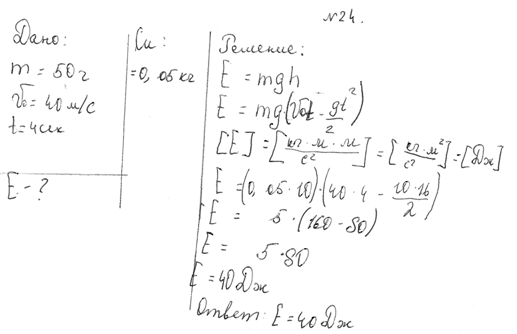 №24.
Дано:
m = 50г
v₀ = 40 м/с
t = 4 сек
E - ?
Си:
= 0,05 кг
Решение:
E = mgh
E = mg(v₀t - gt²/2)
[E] = [кг·м·м/с²] = [кг·м²/с²] = [Дж]
E = (0,05·10)·(40·4 - 10·16/2)
E = 5·(160-80)
E = 5·80
E = 40Дж
Ответ: E = 40Дж